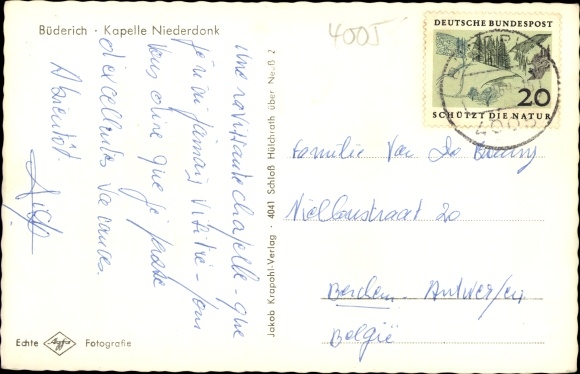 Büderich · Kapelle Niederdonk
4005
DEUTSCHE BUNDESPOST
20
SCHÜTZT DIE NATUR
une ravissante chapelle - que
je n'ai jamais visitée - pour
vous dire que je passe
d'excellentes vacances.
A bientôt
Jakob Krapohl-Verlag · 4041 Schloß Hülchrath über Neuß 2
Familie Van De
20
Berchem - Antwerpen
België
Echte Agfa Fotografie